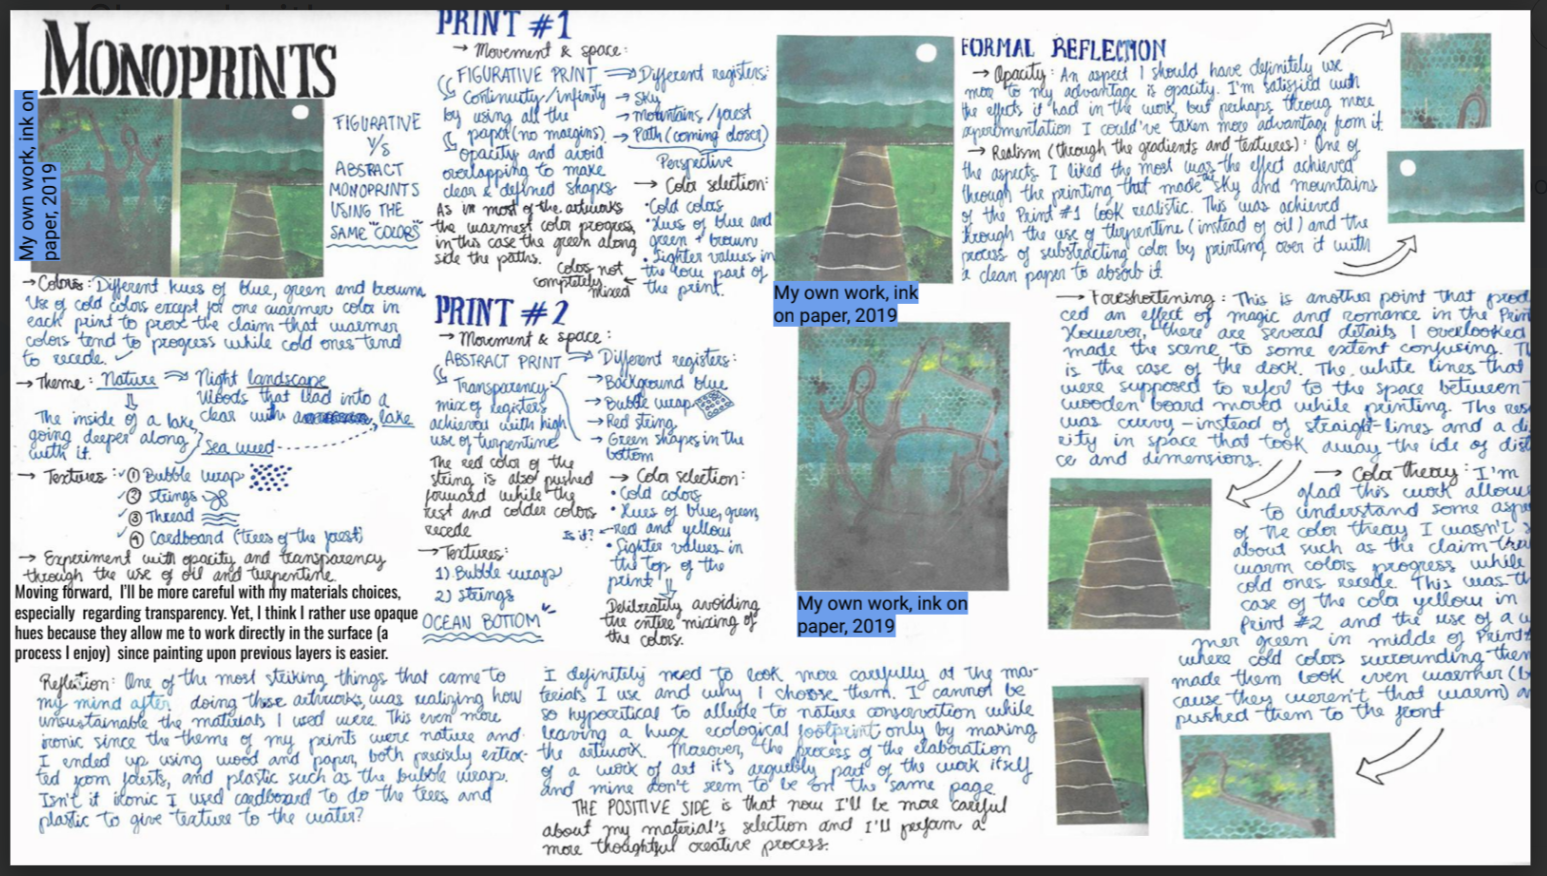 MONOPRINTS
My own work, ink on
paper, 2019
FIGURATIVE
V/S
ABSTRACT
MONOPRINTS
USING THE
SAME "COLORS"
→ Colors: Different hues of blue, green and brown.
Use of cold colors except for one warmer color in
each print to prove the claim that warmer
colors tend to progress while cold ones tend
to recede.
→ Theme: Nature ⇒ Night landscape
Woods that lead into a
clear with lake
The inside of a lake,
going deeper along
with it.
Sea weed
→ Textures: ① Bubble wrap
② Strings
③ Thread
④ Cardboard (trees of the forest)
→ Experiment with opacity and transparency
through the use of oil and turpentine.
Moving forward, I'll be more careful with my materials choices,
especially regarding transparency. Yet, I think I rather use opaque
hues because they allow me to work directly in the surface (a
process I enjoy) since painting upon previous layers is easier.
PRINT #1
→ Movement & space:
FIGURATIVE PRINT ⇒ Different registers:
Continuity/infinity
by using all the
paper (no margins).
Opacity and avoid
overlapping to make
clear & defined shapes
As in most of the artworks
the warmest color progress,
in this case the green along
side the paths.
→ Sky
→ mountains/forest
→ Path (coming closer)
Perspective
→ Color selection:
• Cold colors
• Hues of blue and
green + brown
• Lighter values in
the low part of
the print.
Colors not
completely
mixed
PRINT #2
→ Movement & space:
ABSTRACT PRINT ⇒ Different registers:
Transparency:
mix of registers
achieved with high
use of turpentine
The red color of the
string is also pushed
forward while the
rest and colder colors
recede
→ Background blue
→ Bubble wrap
→ Red string
→ Green shapes in the
bottom
→ Color selection:
• Cold colors
• Hues of blue, green,
red and yellow
Is it?
• Lighter values in
the top of the
print
Deliberately avoiding
the entire mixing of
the colors.
→ Textures:
1) Bubble wrap
2) Strings
OCEAN BOTTOM
My own work, ink
on paper, 2019
My own work, ink on
paper, 2019
FORMAL REFLECTION
→ Opacity: An aspect I should have definitely use
more to my advantage is opacity. I'm satisfied with
the effects it had in the work, but perhaps throug more
experimentation I could've taken more advantage from it.
→ Realism (through the gradients and textures): One of
the aspects I liked the most was the effect achieved
through the printing that made sky and mountains
of the Print #1 look realistic. This was achieved
through the use of turpentine (instead of oil) and the
process of substracting color by printing over it with
a clean paper to absorb it
→ Foreshortening: This is another point that prod
ced an effect of magic and romance in the Prin
However, there are several details I overlooked
made the scene to some extent confusing. T
is the case of the dock. The white lines that
were supposed to refer to the space between
wooden board moved while printing. The res
was curvy – instead of straight – lines and a di
rity in space that took away the ide of dist
ce and dimensions.
→ Color theory: I'm
glad this work allow
to understand some asp
of the color theory I wasn't s
about such as the claim tha
warm colors progress while
cold ones recede. This was th
case of the color yellow in
Print #2 and the use of a w
mer green in middle of Print
where cold colors surrounding them
made them look even warmer (b
cause they weren't that warm) a
pushed them to the front
Reflection: One of the most striking things that came to
my mind after doing these artworks, was realizing how
unsustainable the materials I used were. This even more
ironic since the theme of my prints were nature and
I ended up using wood and paper, both precisely extrac-
ted from forests, and plastic such as the bubble wrap.
Isn't it ironic I used cardboard to do the trees and
plastic to give texture to the water?
I definitely need to look more carefully at the ma-
terials I use and why I choose them. I cannot be
so hypocritical to allude to nature conservation while
leaving a huge ecological footprint only by making
the artwork. Moreover, the process of the elaboration
of a work of art it's arguably part of the work itself
and mine don't seem to be on the same page.
THE POSITIVE SIDE is that now I'll be more careful
about my material's selection and I'll perform a
more thoughtful creative process.